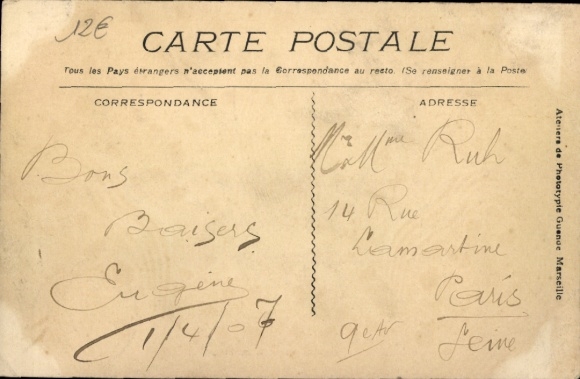 12€
CARTE POSTALE
Tous les Pays étrangers n'acceptent pas la Correspondance au recto. (Se renseigner à la Poste
CORRESPONDANCE
Bons
Baisers
Eugène
1/4/07
ADRESSE
Mme Ruh
14 Rue
Lamartine
Paris
9e Ar
Seine
Ateliers de Phototypie Guende Marseille